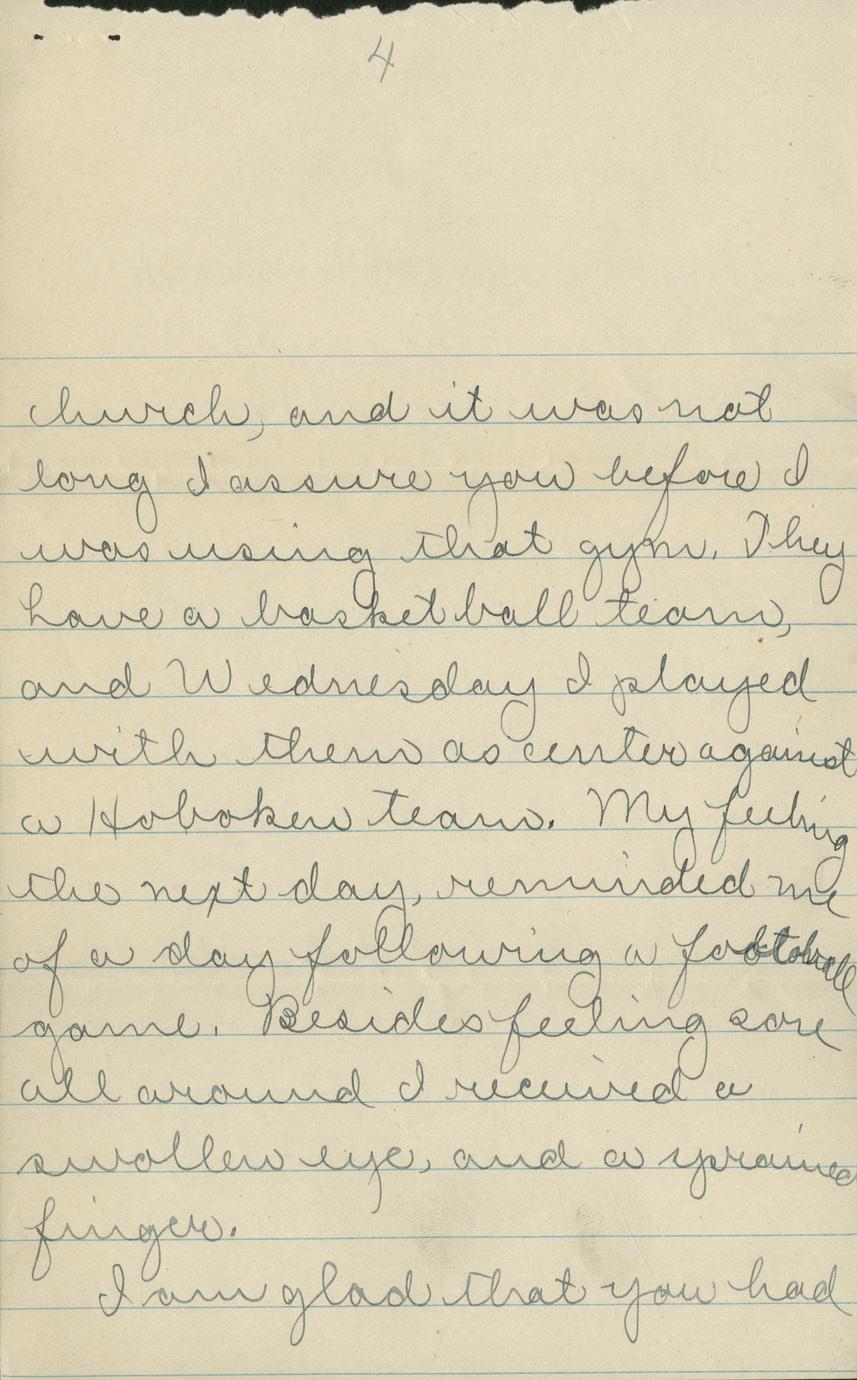 4
church, and it was not
long I assure you before I
was using that gym. They
have a basket ball team,
and Wednesday I played
with them as center against
a Hoboken team. My feeling
the next day, reminded me
of a day following a football
game. Besides feeling sore
all around I received a
swollen eye, and a sprained
finger.
I am glad that you had